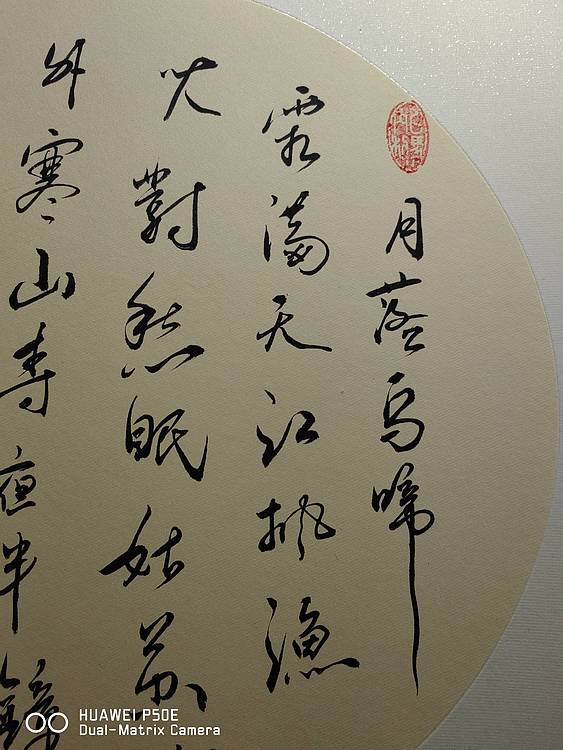 月落烏啼
霜滿天江楓漁
火對愁眠姑蘇
外寒山寺夜半鐘
HUAWEI P50E
Dual-Matrix Camera